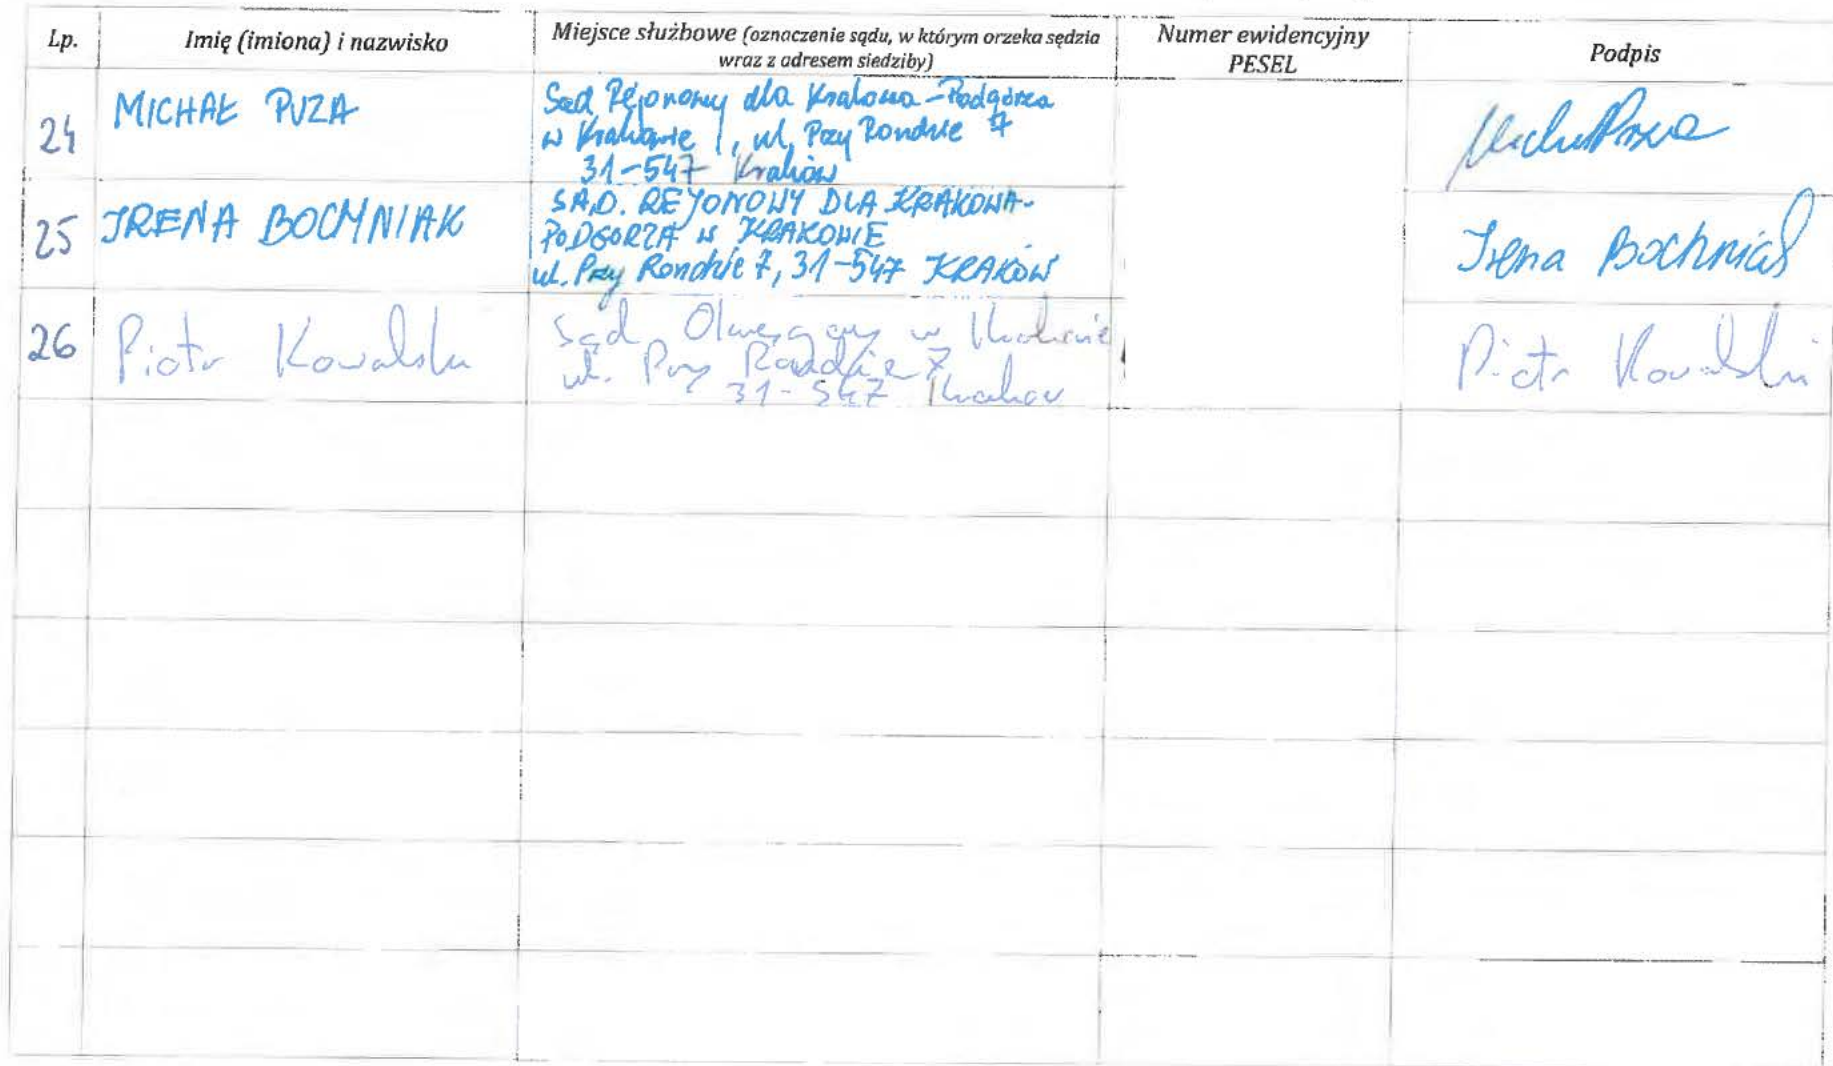 Lp.
Imię (imiona) i nazwisko
Miejsce służbowe (oznaczenie sądu, w którym orzeka sędzia
wraz z adresem siedziby)
Numer ewidencyjny
PESEL
Podpis
24
MICHAŁ PUZA
Sąd Rejonowy dla Krakowa-Podgórza
w Krakowie, ul. Przy Rondzie 7
31-547 Kraków
25
IRENA BOCHNIAK
SĄD. REJONOWY DLA KRAKOWA-
PODGÓRZA W KRAKOWIE
ul. Przy Rondzie 7, 31-547 KRAKÓW
Irena Bochniak
26
Piotr Kowalski
Sąd Okręgowy w Krakowie
ul. Przy Rondzie 7
31-547 Kraków
Piotr Kowalski